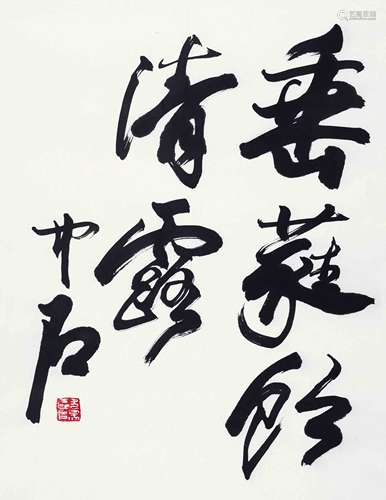 垂蕤飲
清露
中石